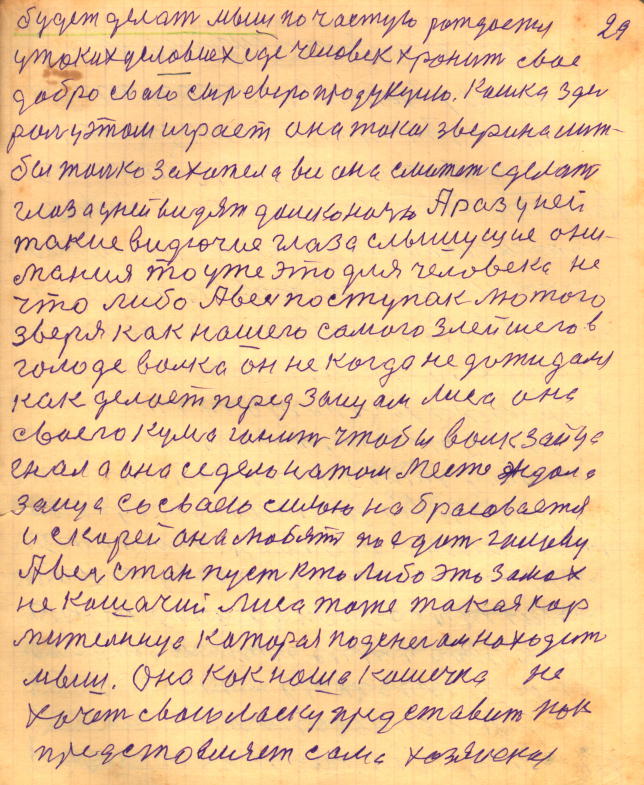 будет делат мыш по частую рождается 29
у таких условиех где человек хронит свае
добро сваго сыр еверо продукцию. Кошка зде
рол у этом играет она така зверина лит-
бы толко захотела все она сможет сделат
глаза уней видят далеко ночю А раз у ней
такие видючие глаза слышущие они-
мания то уже это для человека не
что либо А вел поступак лютого
зверя как нашего самого злейшего в
голоде волка он не когда не дожидаля
как делоет перед зайцам лиса она
своего кума гонит чтобы волк зайца
гнал а она седела на том месте ждала
зайца со сваею силою на брасовается
и скорей она любят поедат голову
А вел стан пуст кто либо это замах
не кошачий Лиса тоже такая кор
мителница каторая поденегам находит
мыш. Она как наша кошечка не
хочет сваю ласку представит как
представляет сама хозяиска